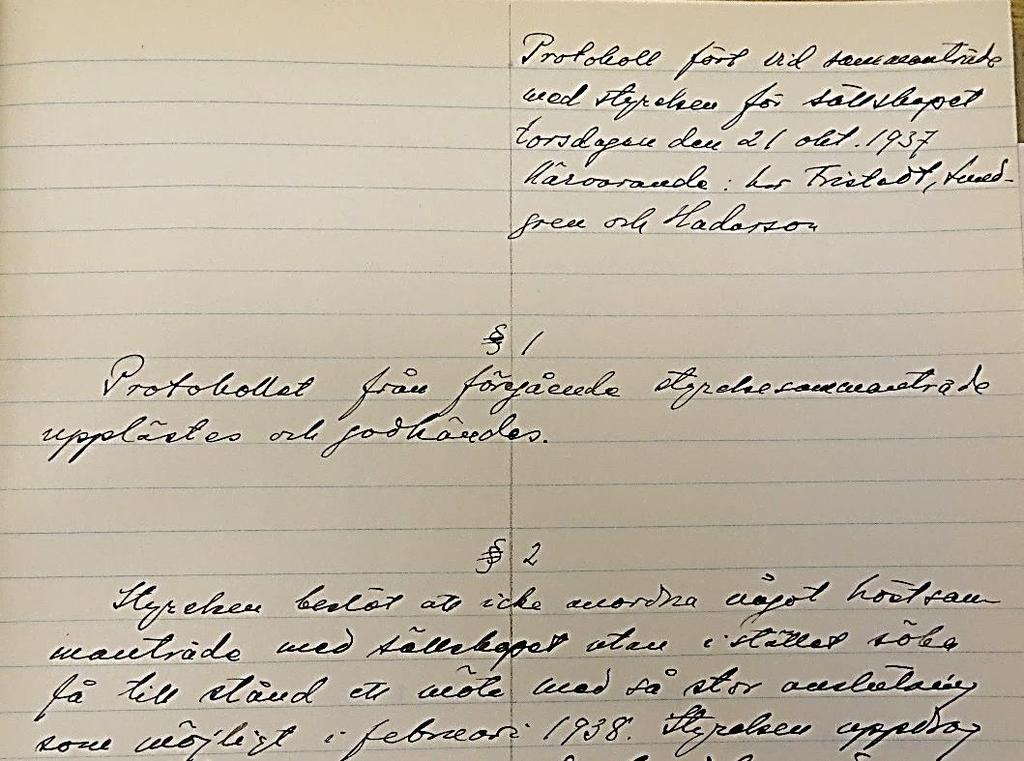 Protokoll fört vid sammanträde
med styrelsen för sällskapet
torsdagen den 21 okt. 1937
Närvarande: hr Fristedt, Lund-
gren och Hadarson
§ 1
Protokollet från föregående styrelsesammanträde
upplästes och godkändes.
§ 2
Styrelsen beslöt att icke anordna något höstsam-
manträde med sällskapet utan i stället söka
få till stånd ett möte med så stor anslutning
som möjligt i februari 1938. Styrelsen uppdrog